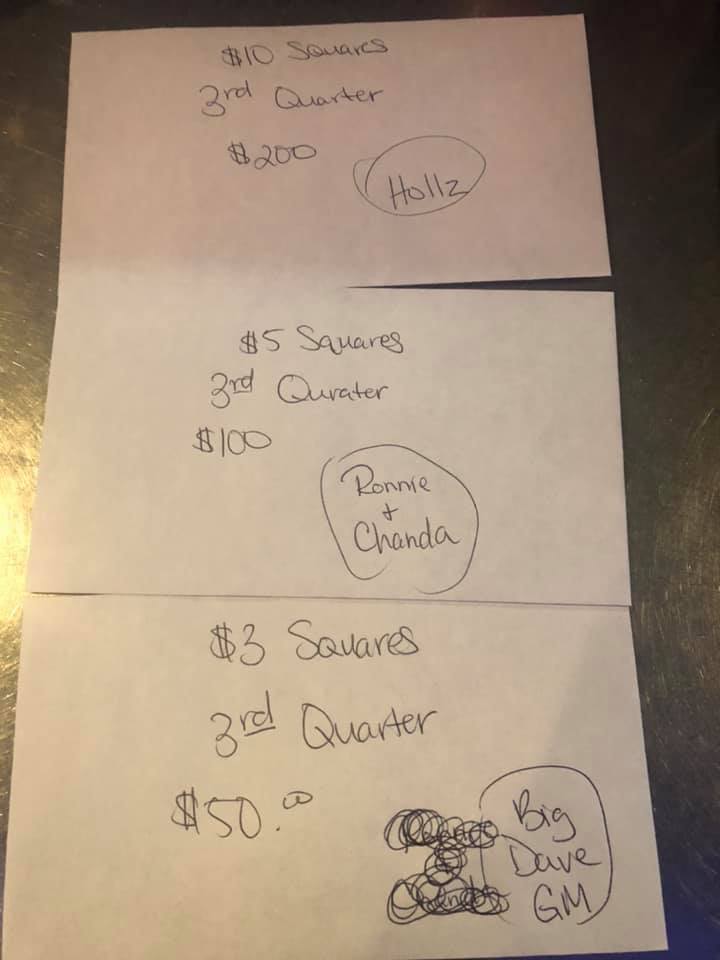 $10 Squares
3rd Quarter
$200
Hollz
$5 Squares
3rd Qurater
$100
Ronnie
+
Chanda
$3 Squares
3rd Quarter
$50.00
Big
Dave
GM